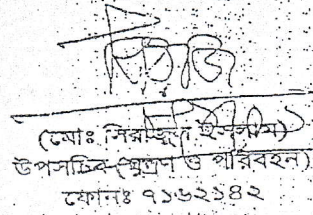 (মোঃ সিরাজুল ইসলাম)
উপসচিব (মুদ্রণ ও পরিবহন)
ফোনঃ ৭১৬২১৪২